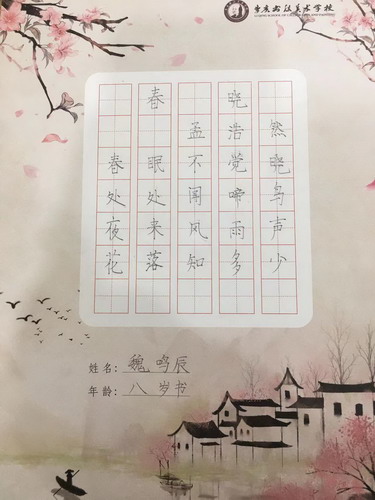 书法美术学校
春 晓
孟浩然
春眠不觉晓
处处闻啼鸟
夜来风雨声
花落知多少
姓名：魏鸣辰
年龄：八岁书